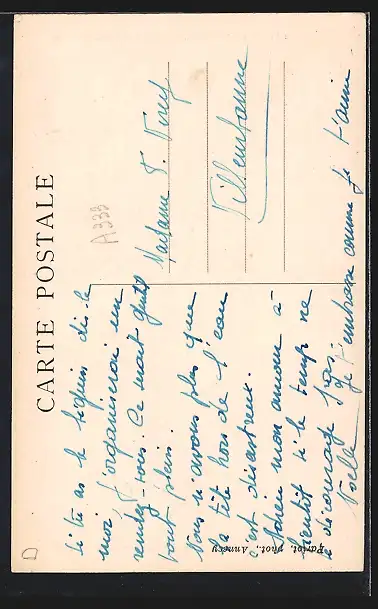 CARTE POSTALE
A333
si tu as le béguin dis-le
moi j'organiserai un
rendez-vous. Ce serait
tout plein.
Nous n'avons plus que
la tête hors de l'eau
c'est désastreux.
Adieu mon amour à
bientôt si le temps ne
décourage pas.
Je t'embrasse comme je t'aime.
Noelle
Madame
Villeurbanne
Pariot, phot., Annecy
D